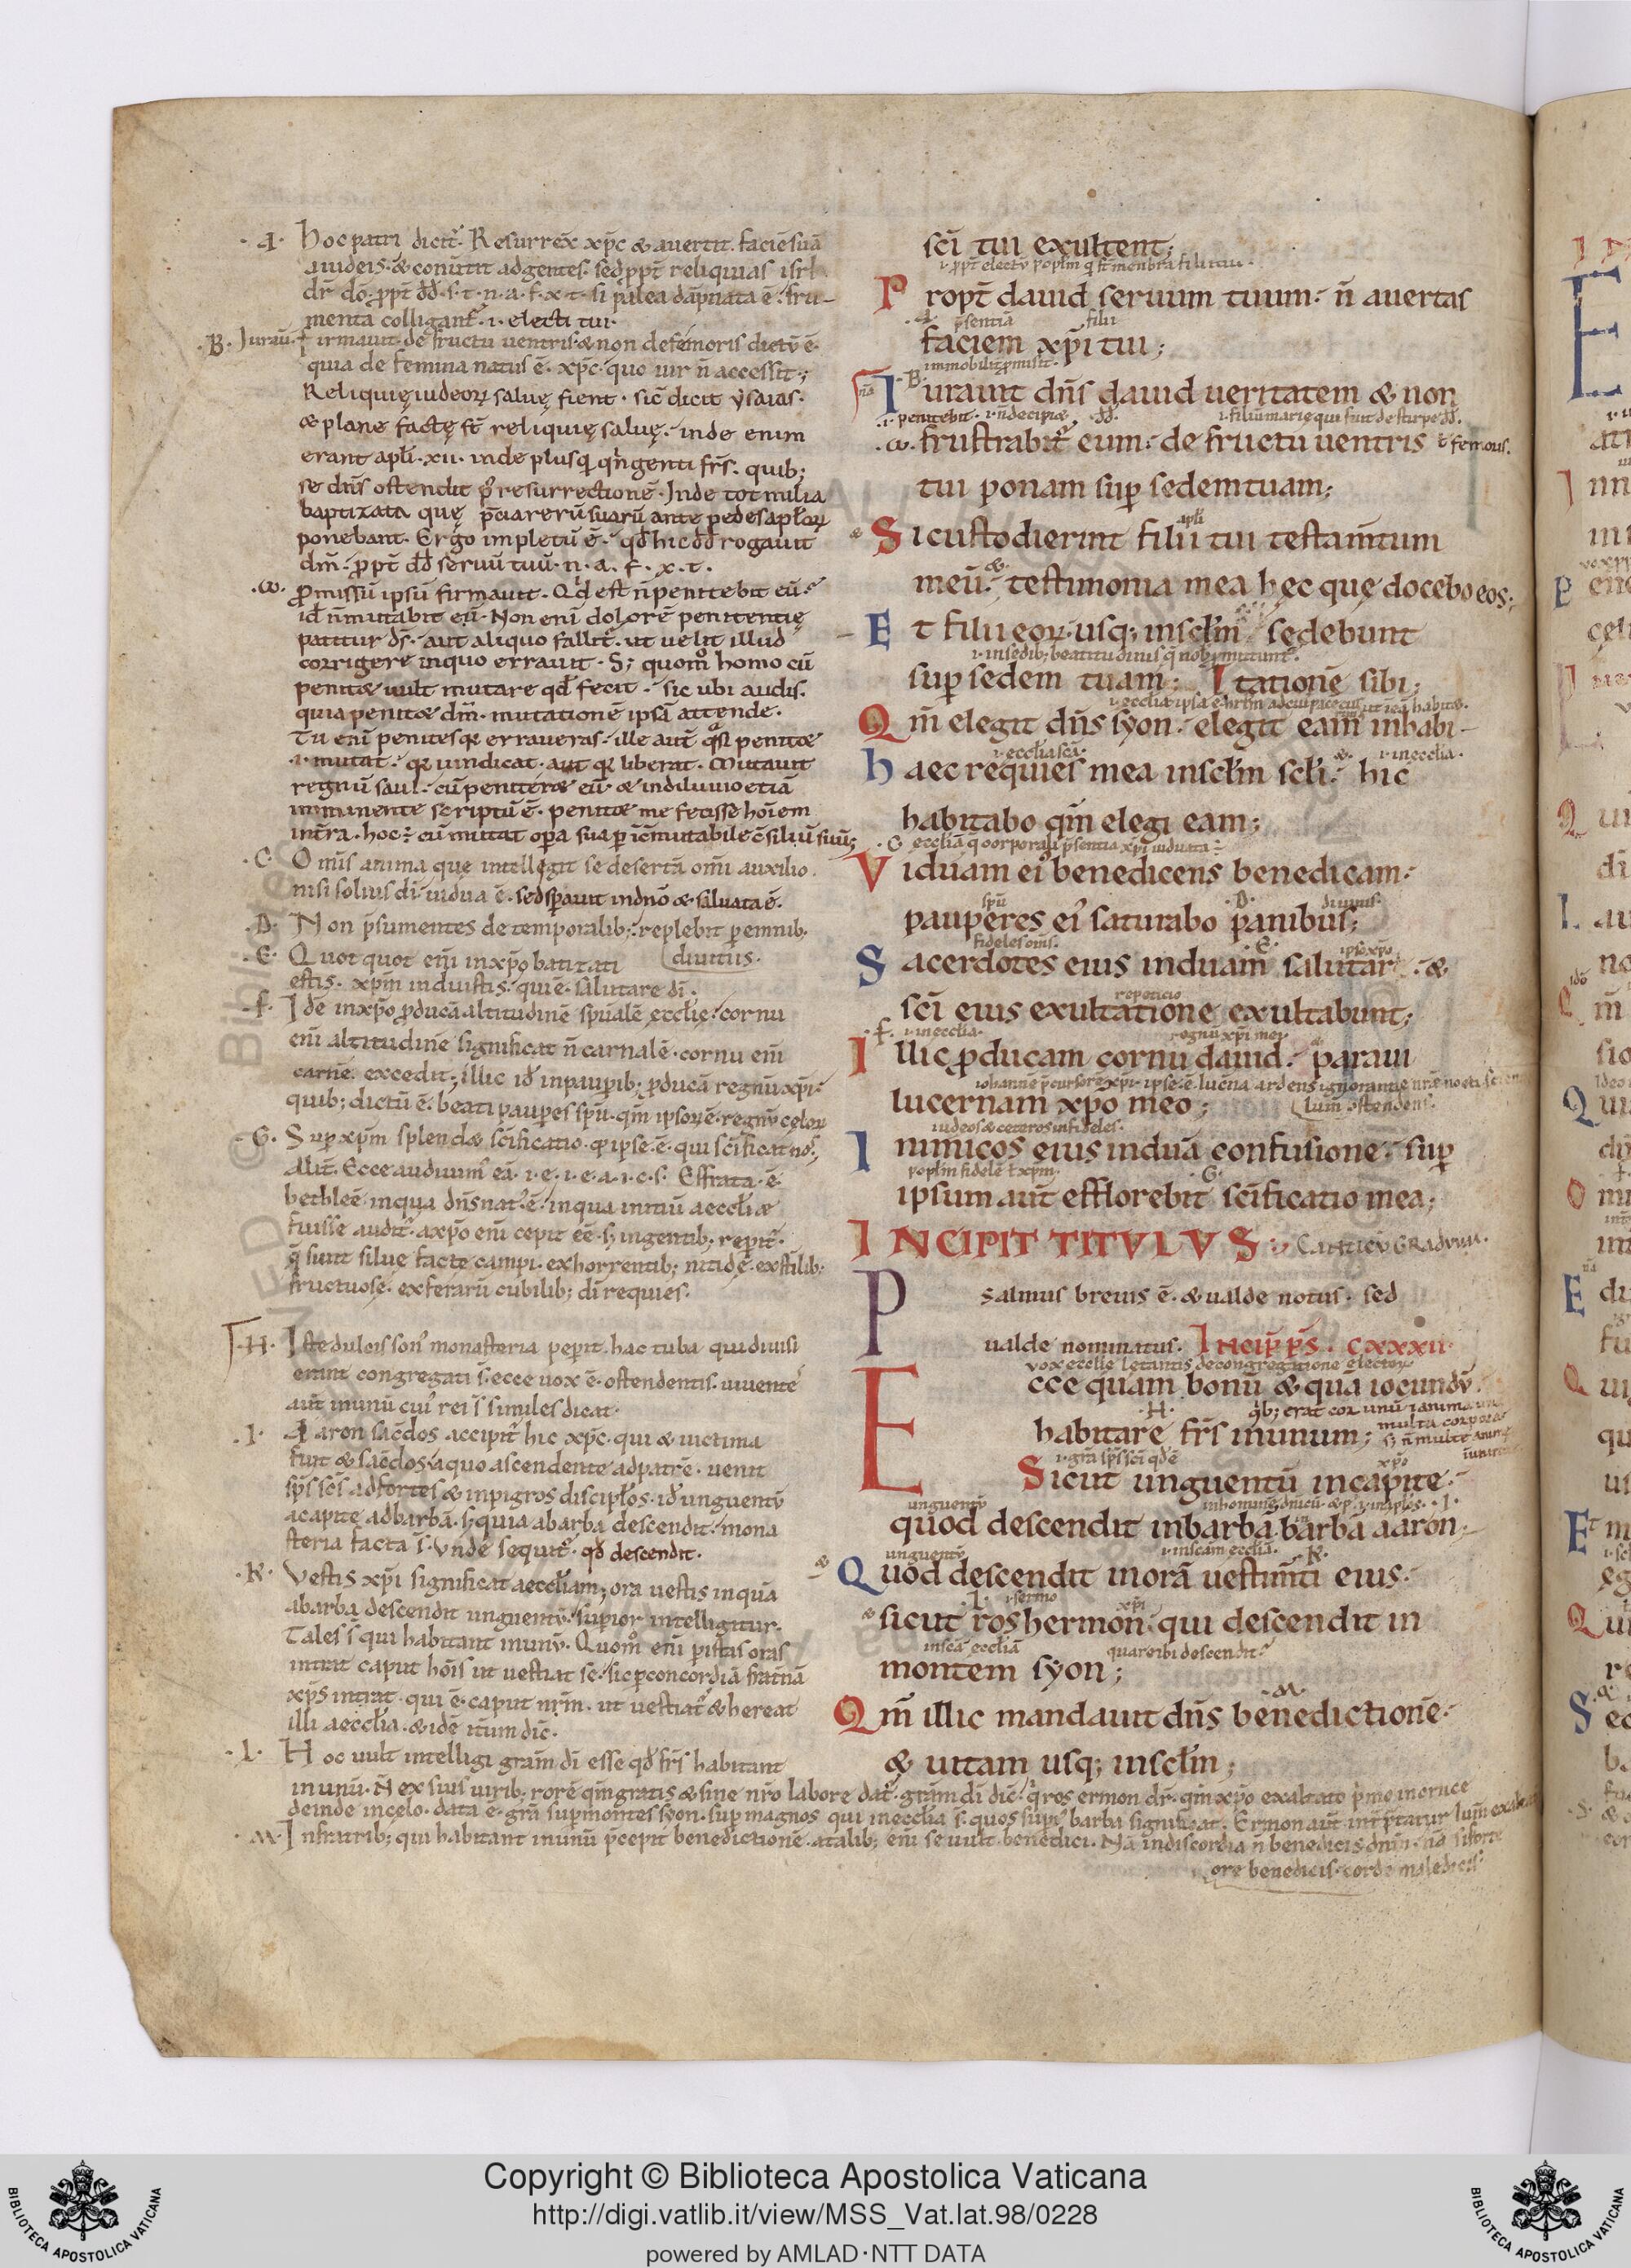 ·A· Hoc patri dicit᷑. Resurrex̄ xp̄c & auertit faciē suā
a iudeis. & conu̅tit ad gentes. sed ꝓpt̄ reliquias isrl
dr̄ dō. ꝓpt̄ dd̄. s. t. n. a. f. x. t. si palea dāpnata ē. fru-
menta colligant᷑. i. electi tui.
·B· Iurauit. firmauit. de fructu uentris. & non de femoris dictū ē.
quia de femina natus ē. xp̄c. quo uir n̄ accessit.;
Reliquię iudeoꝝ saluę fient. sic̄ dicit ysaias.
& plane factę st̄ reliquię saluę. inde enim
erant apl̄i .xii. inde plusq̄ qn̄genti frs̄. quib;
se dn̄s ostendit p' resurrectionē. Inde tot milia
baptizata quę p̄cia rerū suarū ante pedes apl̄oꝝ
ponebant. Ergo impletū ē. qd̄ hic dd̄ rogauit
dm̄. ꝓpt̄ dd̄ seruū tuū. n. a. f. x. t.
·ω· ꝓmissū ipsū firmauit. Qd̄ est n̄ penitebit eū.
id n̄ mutabit eū. Non enī dolorē penitentię
patitur ds̄. aut aliquo fallit᷑. ut uelit illud
corrigere in quo errauit. S; quom̊ homo cū
penit& uult mutare qd̄ fecit. sic ubi audis.
quia penit& dm̄. mutationē ipsā attende.
Tu enī penites qꝛ erraueras. ille aut̄ q̄si penit&
.i. mutat. qꝛ uindicat. aut qꝛ liberat. Mutauit
regnū saul. cū penitere eū. & in diluuio etiā
imminente scriptū ē. penit& me fecisse hoīem
in t̄ra. hoc ÷ cū mutat opera sua ꝑ īc̄mutabile c̄siliū suū;
·C· Om̄s anima que intellegit se desertā om̄i auxilio.
nisi solius dī. uidua ē. sed sꝑauit in dn̄o & saluata ē.
·D· Non p̄sumentes de temporalib;. replebit perennib.
diuitiis.
·E· Quot quot enī in xp̄o batizati
estis. xp̄m induistis. qui ē salutare dī.
·F· Idē in xp̄o ꝓducā altitudinē spūalē eccl̄ię. cornu
enī altitudinē significat n̄ carnalē. cornu enī
carnē excedit; illic id in pauꝑib; ꝓducā regnū xp̄i.
quib; dictū ē. beati pauꝑes spū. qm̄ ipsoꝝ ē regnū celoꝝ
·G· Suꝑ xp̄m splend& sc̄ificatio. qꝛ ipse ē qui sc̄ificat nos;
Alit̄. Ecce audiuim' eā. i. e. i. e. a. i. c. s. Effrata ē
bethleē. in qua dn̄s nat' ē. in qua initiū aeccl̄iæ
fuisse audit᷑. a xp̄o enī cepit eē. s; in gentib; reꝑit᷑.
q̄ sunt silue facte campi. ex horrentib; nitidę. ex st̄ilib;
fructuose. ex ferarū cubilib; dī requies.
·H· Iste dulcis son' monasteria peperit. hac tuba qui diuisi
erant congregati s̄. ecce uox ē. ostendentis. uiuentē
aūt in unū cui' rei s̄ similes dicat.
·I· Aaron sac̄dos accipit᷑ hic xp̄c. qui & uictima
fuit & sac̄dos. a quo ascendente ad patrē. uenit
sp̄s sc̄s ad fortes & inpigros discipl̄os. id unguentū
a capite ad barbā. s; quia a barba descendit. mona
steria facta s̄. Unde sequit᷑. qd̄ descendit.
·K· Vestis xp̄i significat aeccl̄iam; ora uestis in quā
a barba descendit unguentū. superior intelligitur.
Tales s̄ qui habitant in unū. Quom̊ enī ꝑ istas oras
intrat caput hoīs ut uestiat se. sic ꝑ concordiā frat̄nā
xp̄s intrat. qui ē caput nr̄m. ut uestiat᷑ & hereat
illi aeccl̄ia. & idē it̄um dic̄.
·L· Hoc uult intelligi gratiā dī esse qd̄ frs̄ habitant
in unū. N̄ ex suis uirib; rorē qm̄ gratis & sine nr̄o labore dat᷑. gratiā dī dic̄. q' ros ermon dr̄. qm̄ xp̄o exaltato p'mo in cruce
deinde in celo. data ē gr̄a suꝑ montes syon. suꝑ magnos qui in eccl̄ia s̄. quos suꝑi' barba significat. Ermon aūt int̄ptatur lum̄
·M· In fratrib; qui habitant in unū p̄cepit benedictionē. a talib; enī se uult benedici. Nā in discordia n̄ benedicis dn̄m. nā si forte
ore benedicis. corde maledicis.
sc̄i tui exultent;
.i. ꝓpt̄ electū poplm̄ q st̄ membra filii tui.
Propt̄ dauid seruum tuum. n̄ auertas
·A· p̄sentiā filii
faciem xp̄i tui;
·B· immobilit̄ ꝓmisit.
Iurauit dn̄s dauid ueritatem & non
.i. penitebit. .i. n̄ decipi& dd̄. .i. filiū marię qui fuit de stirpe dd̄.
·ω· frustrabit᷑ eum. de fructu uentris ł femoris.
tui ponam suꝑ sedem tuam;
apl̄i
Si custodierint filii tui testam̄tum
meū. & testimonia mea hęc quę docebo eos;
Et filii eoꝝ. usq; in scl̄m sedebunt
.i. in sedib; beatitudinis q̄ nob ꝓmittunt᷑.
suꝑ sedem tuam; Itationē sibi;
Qm̄ elegit dn̄s syon. elegit eam in habi-
.i. eccl̄ia sc̄a. &. .i. in eccl̄ia.
Haec requies mea in scl̄m scl̄i. hic
habitabo qm̄ elegi eam;
·C· eccl̄iā q̄ corporali p̄sentia xp̄i uiduata ÷
Viduam ei' benedicens benedicam.
spū ·D· diuinis.
pauperes ei' saturabo panibus;
fideles om̄s. ·E· ipso xp̄o
Sacerdotes eius induam salutari. &
repeticio
sc̄i eius exultatione exultabunt;
·F· .i. in eccl̄ia. regnū xp̄i mei
Illic ꝓducam cornu dauid. paraui
lum ostendens.
lucernam xp̄o meo;
iudeos & ceteros infideles.
Inimicos eius induā confusione. suꝑ
poplm̄ fidelē ł xp̄m. ·G·
ipsum aut̄ efflorebit sc̄ificatio mea;
INCIPIT TITVLVS. CANTICŪ GRADVVM.
Psalmus breuis ē. & ualde notus. sed
ualde nominatus. INCIP̄ PS̄. CXXXII.
uox eccl̄ie letantis de congregatione electoꝝ
Ecce quam bonū & quā iocundū.
·H· q'b; erat cor unū & anima una
habitare frs̄ in unum; multa corpora
s; n̄ multe anime
.i. gr̄a sp̄s sc̄i qd̄ ē xp̄o
Sicut unguentū in capite.
unguentū ·I·
quod descendit in barbā. barbā aaron;
unguentū .i. in sc̄am eccl̄iā. ·K·
Quod descendit in orā uestim̄ti eius.
·L· xp̄i
sicut ros hermon. qui descendit in
in sc̄ā eccl̄iā quare ibi descendit?
montem syon;
·M·
Qm̄ illic mandauit dn̄s benedictionē.
& uitam usq; in scl̄m;
© Biblioteca Apostolica Vaticana
Copyright © Biblioteca Apostolica Vaticana
http://digi.vatlib.it/view/MSS_Vat.lat.98/0228
powered by AMLAD·NTT DATA
BIBLIOTECA APOSTOLICA VATICANA
BIBLIOTECA APOSTOLICA VATICANA